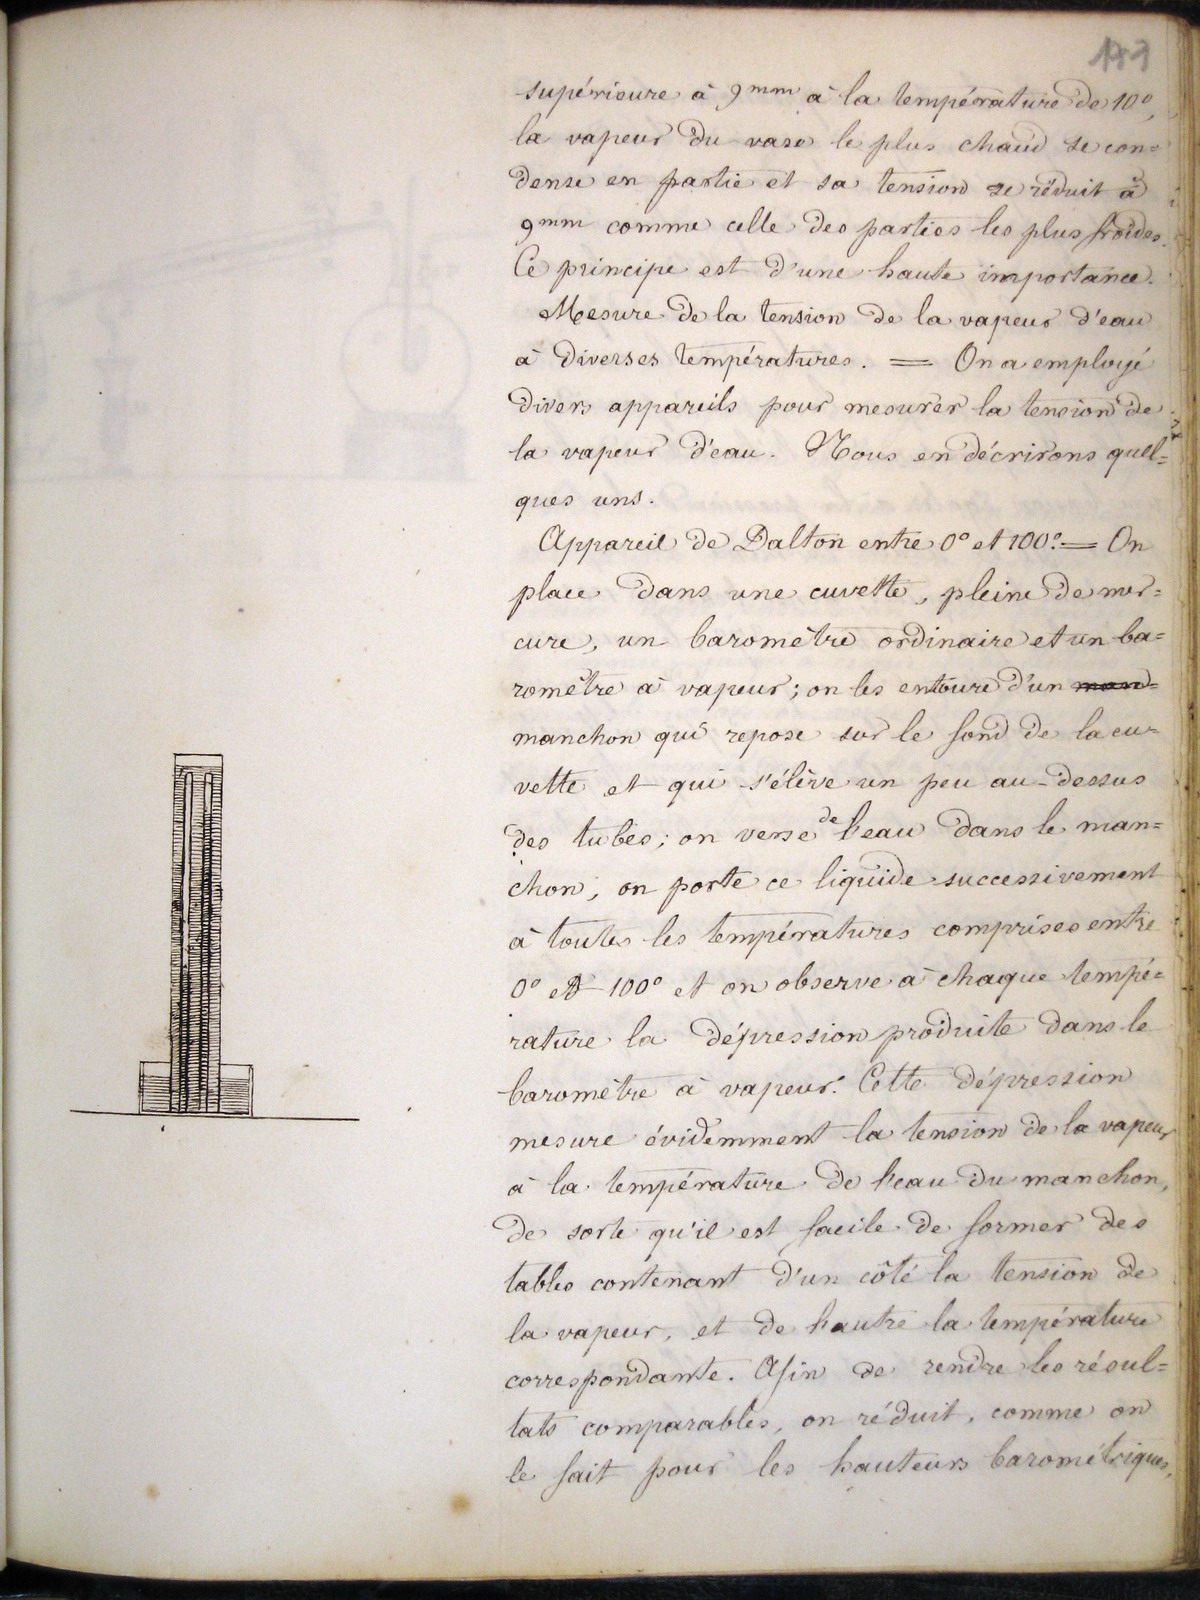 supérieure à 9mm à la température de 10°,
la vapeur du vase le plus chaud se con=
dense en partie et sa tension se réduit à
9mm comme celle des parties les plus froides.
Ce principe est d'une haute importance.
Mesure de la tension de la vapeur d'eau
à diverses températures. = On a employé
divers appareils pour mesurer la tension de
la vapeur d'eau. Nous en décrirons quel=
ques uns.
Appareil de Dalton entre 0° et 100°. = On
place dans une cuvette, pleine de mer=
cure, un baromètre ordinaire et un ba=
romètre à vapeur; on les entoure d'un man=
manchon qui repose sur le fond de la cu=
vette et qui s'élève un peu au-dessus
des tubes; on verse de l'eau dans le man=
chon, on porte ce liquide successivement
à toutes les températures comprises entre
0° et 100° et on observe à chaque tempé=
rature la dépression produite dans le
baromètre à vapeur. Cette dépression
mesure évidemment la tension de la vapeur
à la température de l'eau du manchon,
de sorte qu'il est facile de former des
tables contenant d'un côté la tension de
la vapeur, et de l'autre la température
correspondante. Afin de rendre les résul=
tats comparables, on réduit, comme on
le fait pour les hauteurs barométriques,